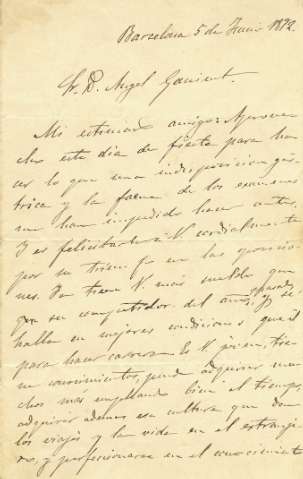 Barcelona 5 de Junio 1872.
Sr. D. Angel Ganivet.
Mi estimado amigo: Aprove
cho este día de fiesta para ha
cer lo que una indisposicion gás
trica y la faena de los exámenes
me han impedido hacer antes,
y es felicitarle á V. cordialmente
por su triunfo en las oposicio
nes. No tiene V. más sueldo que
su competidor del año pasado, y se
halla en mejores condiciones que él
para hacer carrera. Es V. jóven, tie
ne conocimientos, puede adquirir mu
chos mas empleando bien el tiempo,
adquirir ademas esa cultura que dan
los viajes y la vida en el estranje
ro, y perfeccionarse en el conocimient